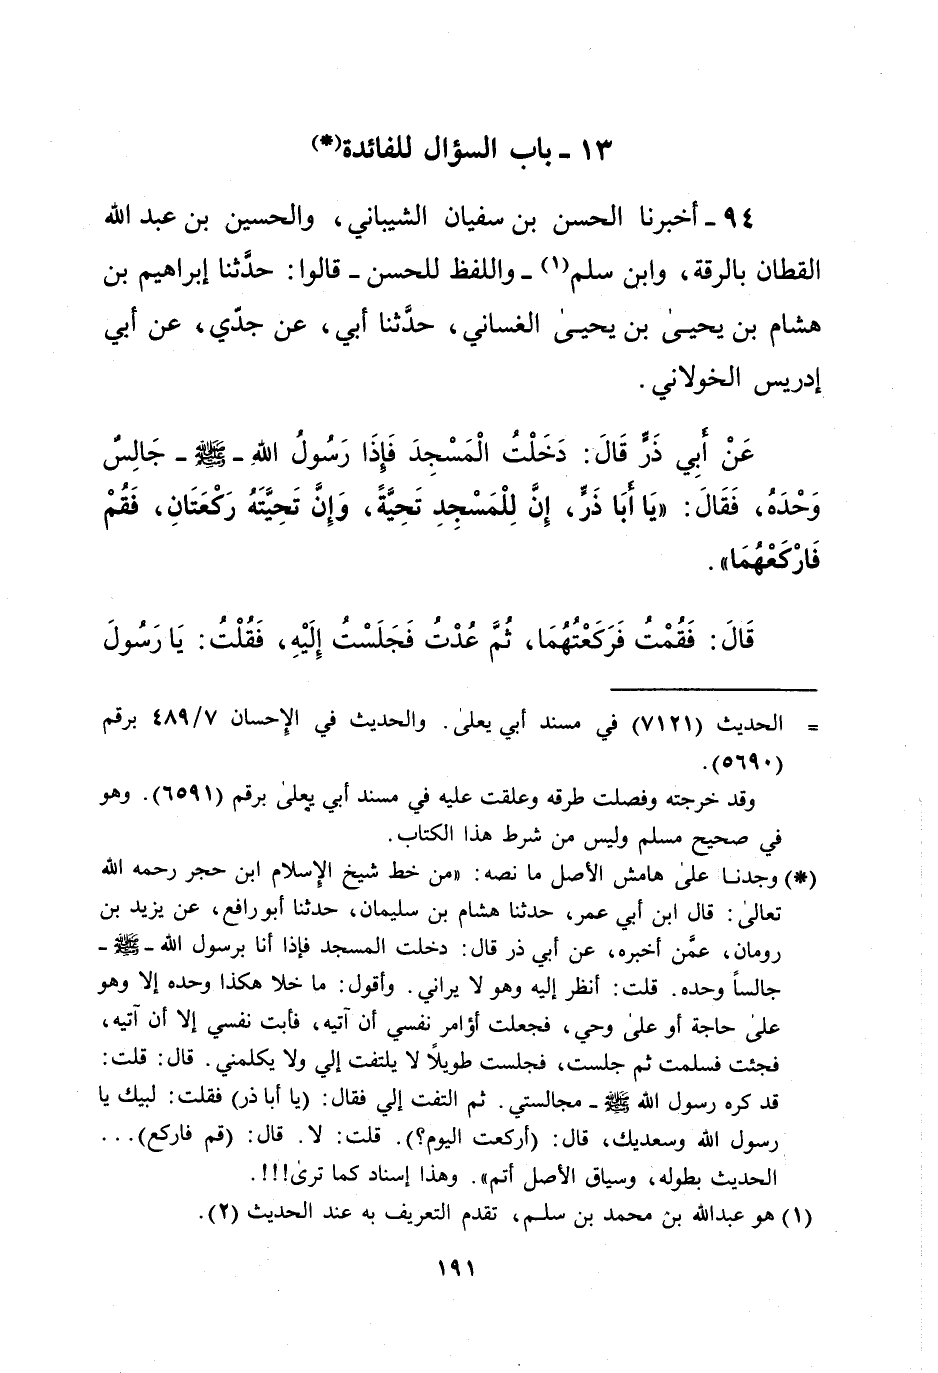 ١٣ - باب السؤال للفائدة(*)
٩٤ - أخبرنا الحسن بن سفيان الشيباني، والحسين بن عبد الله
القطان بالرقة، وابن سلم(١) - واللفظ للحسن - قالوا: حدَّثنا إبراهيم بن
هشام بن يحيىٰ بن يحيىٰ الغساني، حدَّثنا أبي، عن جدّي، عن أبي
إدريس الخولاني.
عَنْ أَبِي ذَرٍّ قَالَ: دَخَلْتُ الْمَسْجِدَ فَإِذَا رَسُولُ اللهِ - ﷺ - جَالِسٌ
وَحْدَهُ، فَقَالَ: «يَا أَبَا ذَرٍّ، إِنَّ لِلْمَسْجِدِ تَحِيَّةً، وَإِنَّ تَحِيَّتَهُ رَكْعَتَانِ، فَقُمْ
فَارْكَعْهُمَا».
قَالَ: فَقُمْتُ فَرَكَعْتُهُمَا، ثُمَّ عُدْتُ فَجَلَسْتُ إِلَيْهِ، فَقُلْتُ: يَا رَسُولَ
= الحديث (٧١٢١) في مسند أبي يعلىٰ. والحديث في الإحسان ٤٨٩/٧ برقم
(٥٦٩٠).
وقد خرجته وفصلت طرقه وعلقت عليه في مسند أبي يعلىٰ برقم (٦٥٩١). وهو
في صحيح مسلم وليس من شرط هذا الكتاب.
(*) وجدنا علىٰ هامش الأصل ما نصه: «من خط شيخ الإسلام ابن حجر رحمه الله
تعالىٰ: قال ابن أبي عمر، حدثنا هشام بن سليمان، حدثنا أبو رافع، عن يزيد بن
رومان، عمَّن أخبره، عن أبي ذر قال: دخلت المسجد فإذا أنا برسول الله - ﷺ -
جالساً وحده. قلت: أنظر إليه وهو لا يراني. وأقول: ما خلا هكذا وحده إلا وهو
علىٰ حاجة أو علىٰ وحي، فجعلت أؤامر نفسي أن آتيه، فأبت نفسي إلا أن آتيه،
فجئت فسلمت ثم جلست، فجلست طويلاً لا يلتفت إلي ولا يكلمني. قال: قلت:
قد كره رسول الله ﷺ - مجالستي. ثم التفت إلي فقال: (يا أبا ذر) فقلت: لبيك يا
رسول الله وسعديك، قال: (أركعت اليوم؟). قلت: لا. قال: (قم فاركع)...
الحديث بطوله، وسياق الأصل أتم». وهذا إسناد كما ترىٰ!!!.
(١) هو عبدالله بن محمد بن سلم، تقدم التعريف به عند الحديث (٢).
١٩١